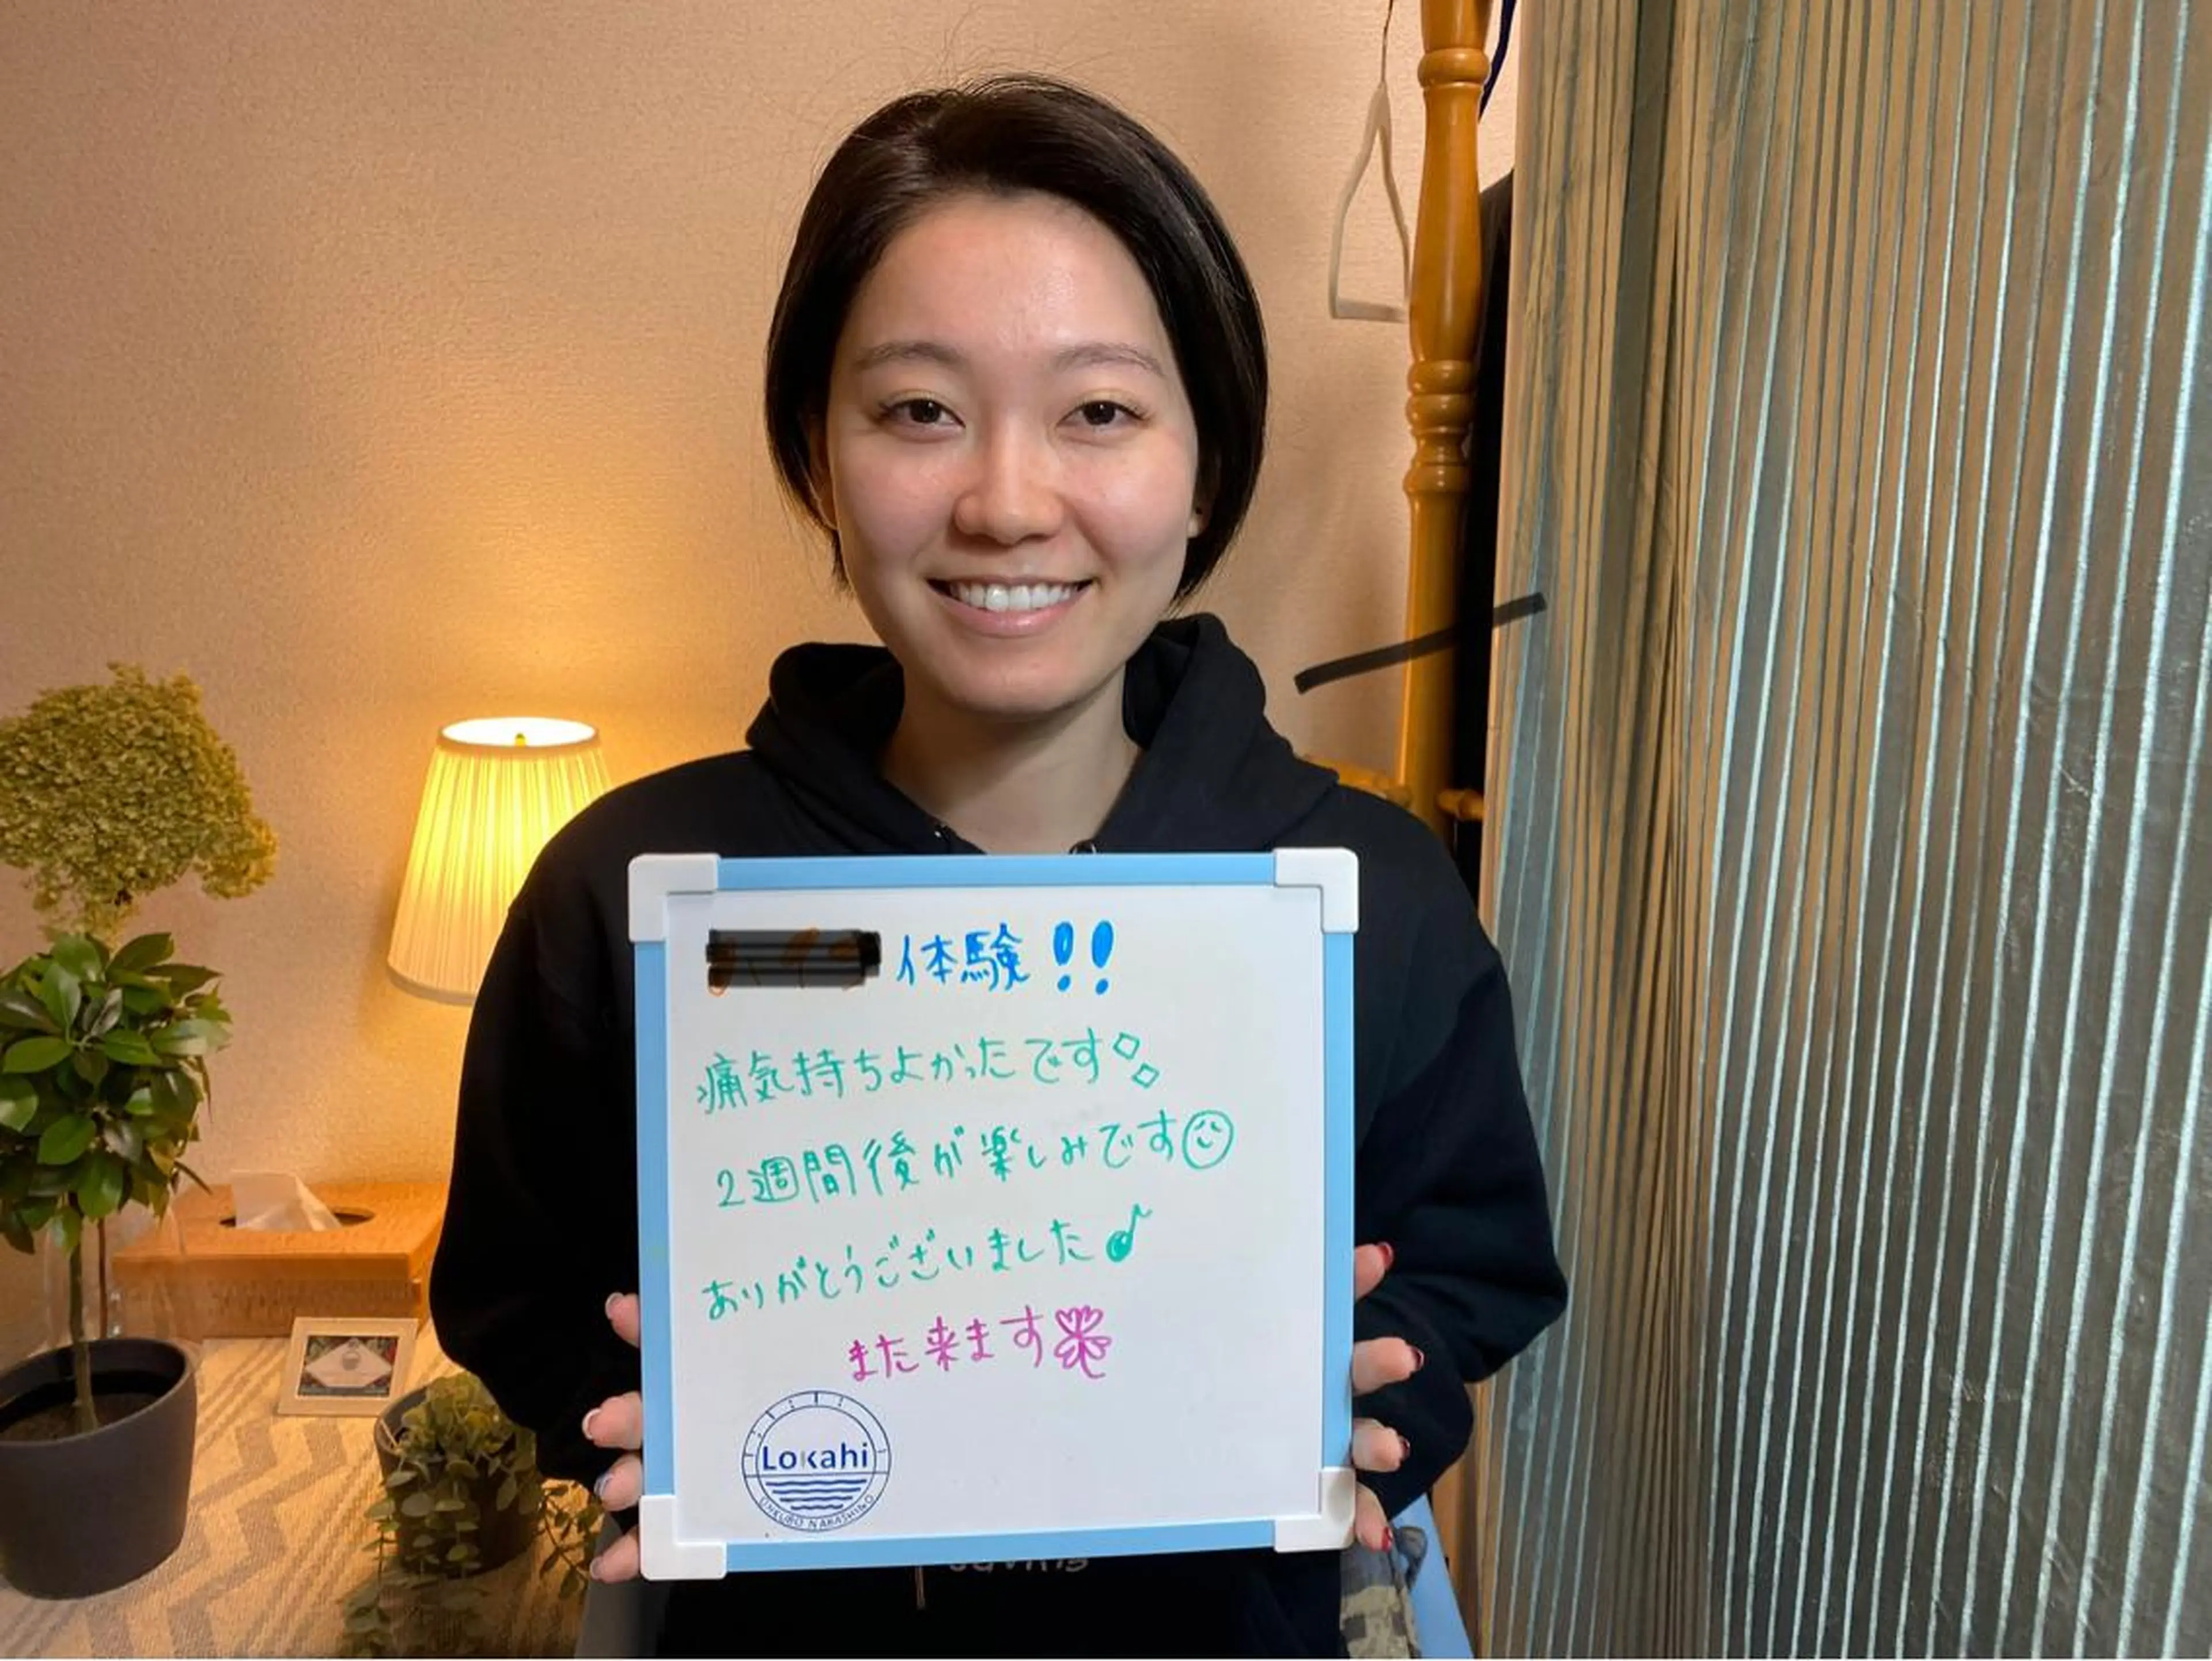 体験!!
痛気持ちよかったです
2週間後が楽しみです
ありがとうございました♪
また来ます
Lokahi